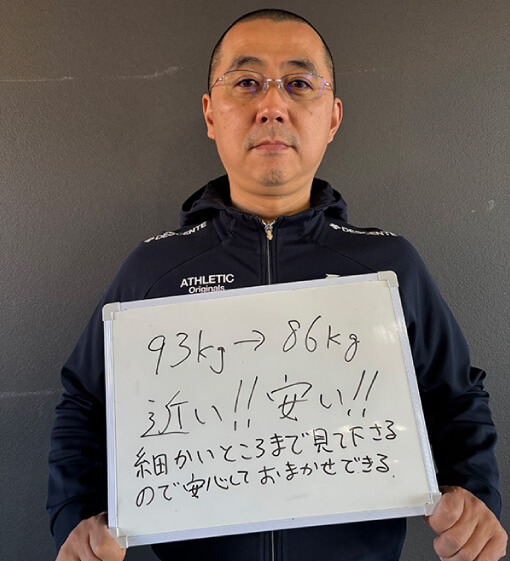 DESCENTE
DESCENTE
ATHLETIC
Originals
93kg→86kg
近い!!安い!!
細かいところまで見て下さる
ので安心しておまかせできる.